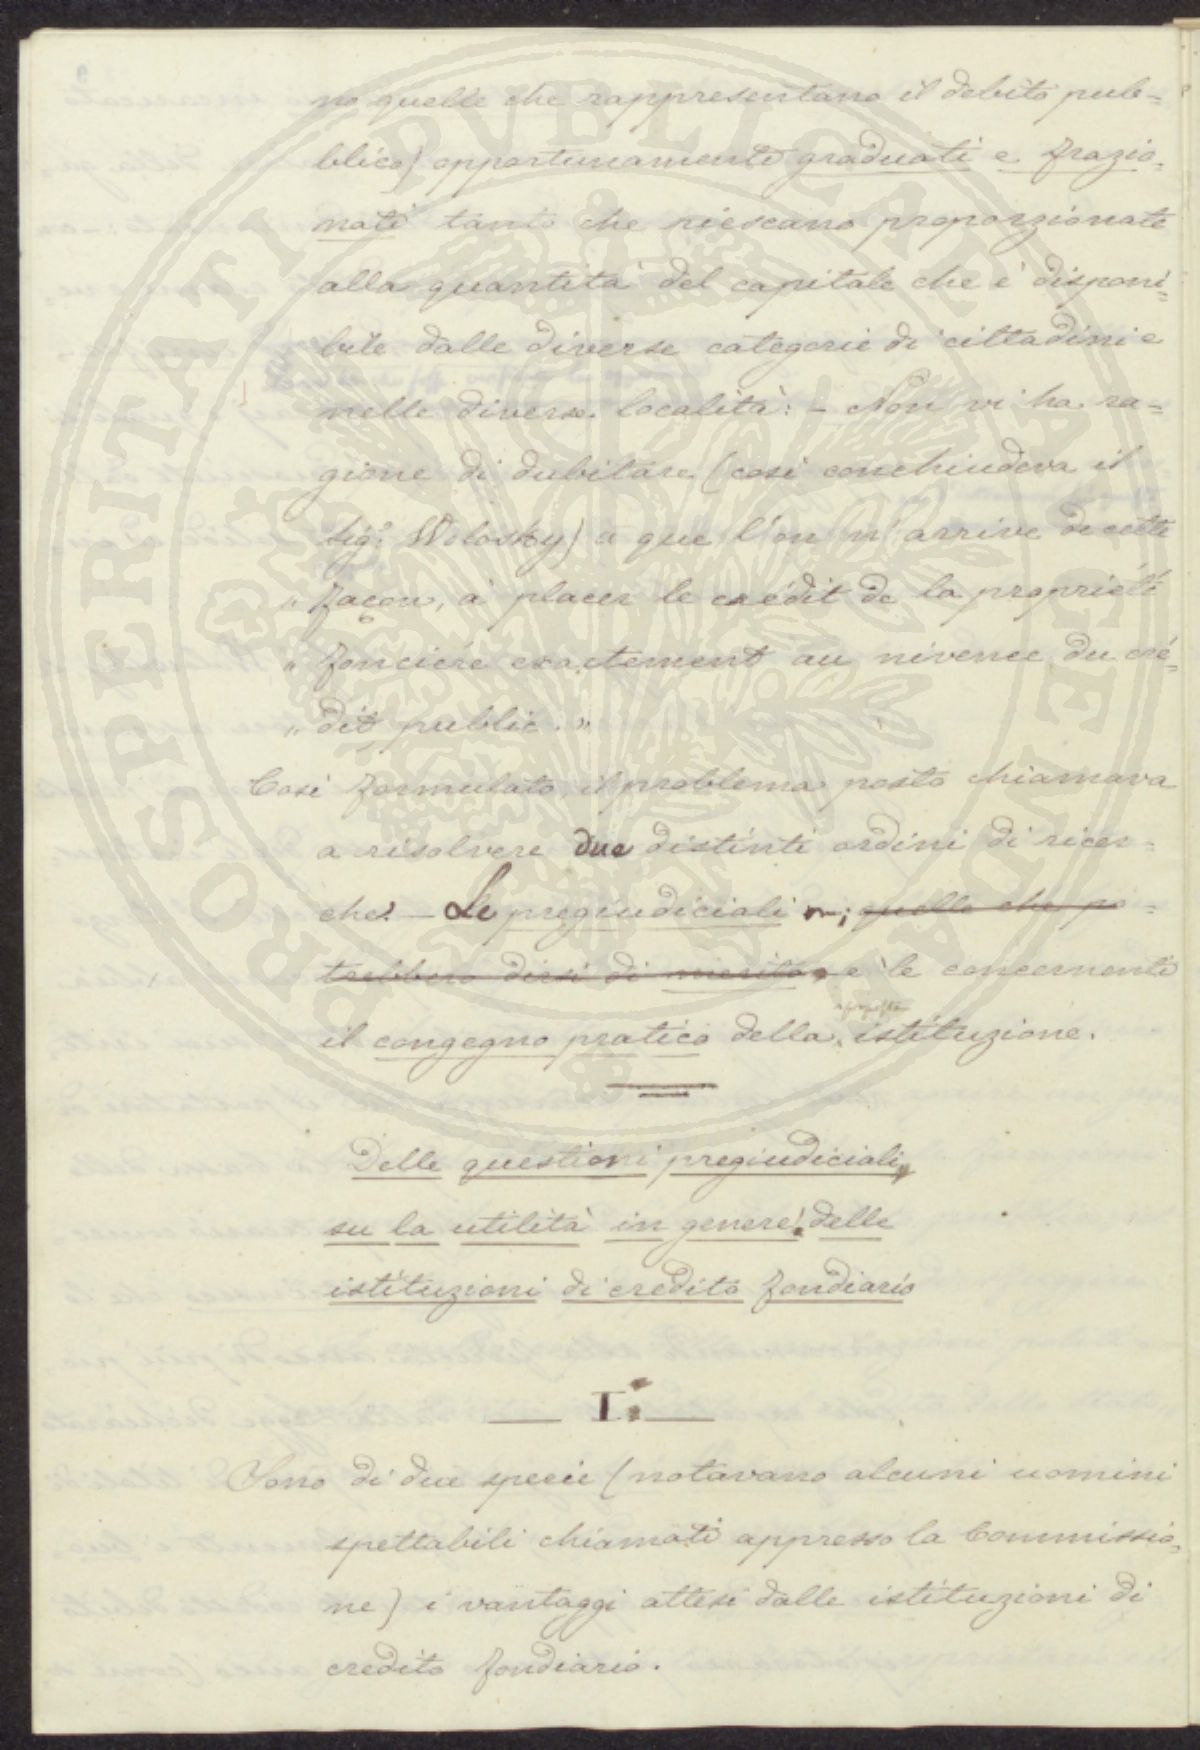 no quelle che rappresentano il debito pub=
blico) opportunamente graduati e frazio=
nati tanto che riescano proporzionate
alla quantità del capitale che è disponi=
bile dalle diverse categorie di cittadini e
nelle diverse località: – Non vi ha ra=
gione di dubitare (così conchiudeva il
Sigr. Wolosky) a que l'on n'arrive de cette
" façon, à placer le crédit de la propriété
" fonciére exactement au niveau du cré=
" dit public. "
Così formulato, il problema posto chiamava
a risolvere due distinti ordini di ricer=
che: – Le pregiudiciali ; quelle che po=
trebbero dirsi di merito, e le concernenti
il congegno pratico della istituzione.
Delle questioni pregiudiciali,
su la utilità in genere delle
istituzioni di credito fondiario
I.
Sono di due specie (notavano alcuni uomini
spettabili chiamati appresso la Commissio=
ne) i vantaggi attesi dalle istituzioni di
credito fondiario.
PUBLICAE AUGENDAE PROSPERITATI